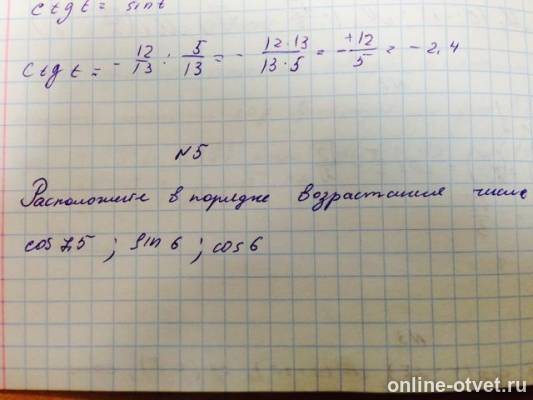 ctg t = sin t
ctg t = - 12/13 : 5/13 = - 12·13/13·5 = - +12/5 = - 2,4
N5
Расположите в порядке возрастания числа
cos 7,5 ; sin 6 ; cos 6
online-otvet.ru